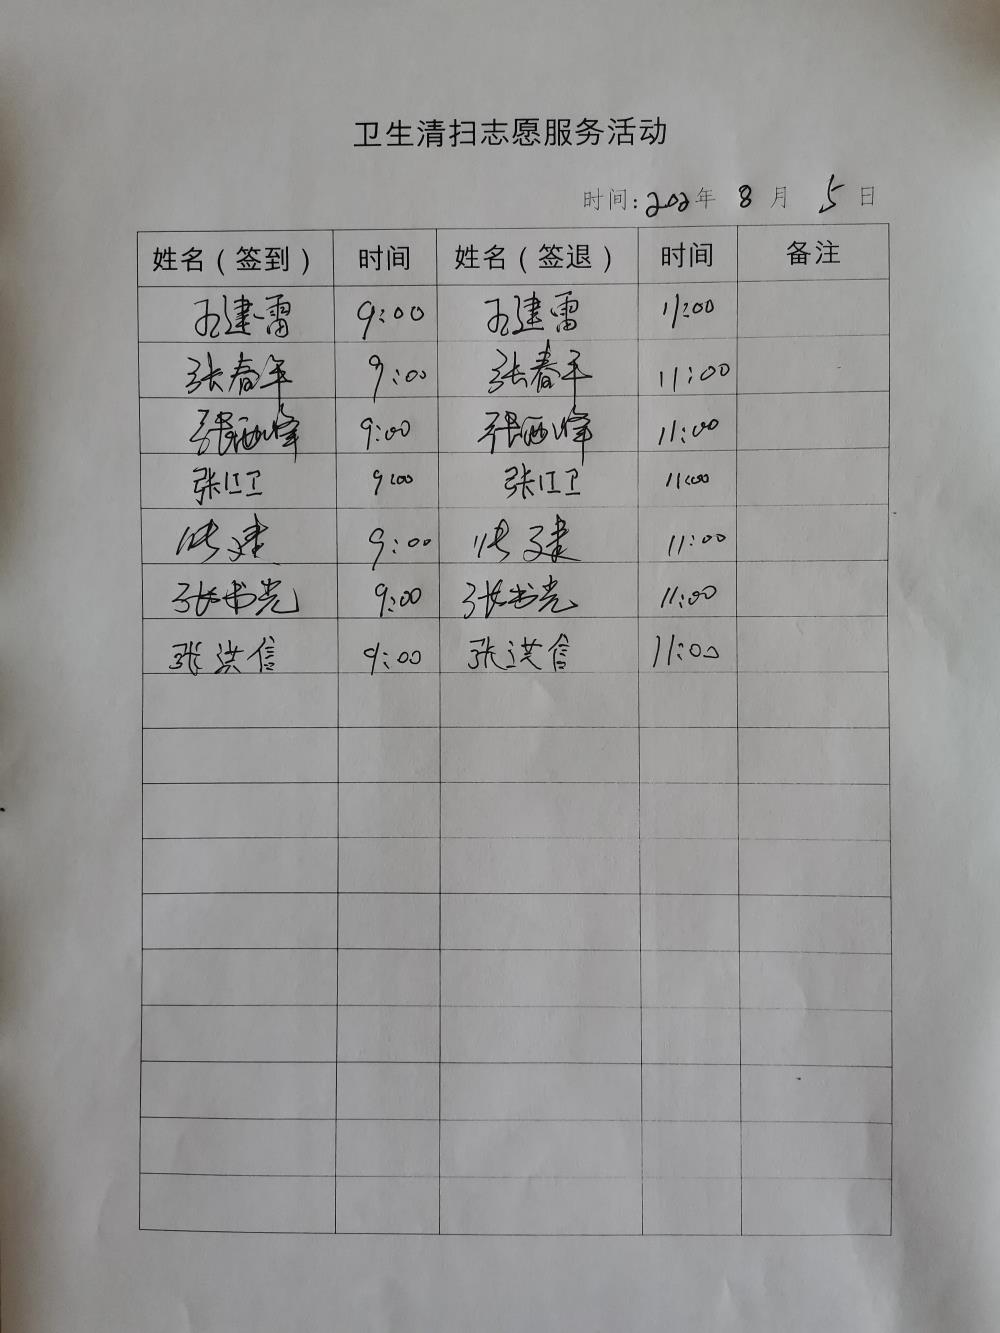 卫生清扫志愿服务活动
时间: 202 年 8 月 5 日
姓名（签到） 时间 姓名（签退） 时间 备注
建雷 9:00 建雷 11:00
张春年 9:00 张春年 11:00
张西峰 9:00 张西峰 11:00
张江卫 9:00 张江卫 11:00
张建 9:00 张建 11:00
张书亮 9:00 张书亮 11:00
张洪信 9:00 张洪信 11:00